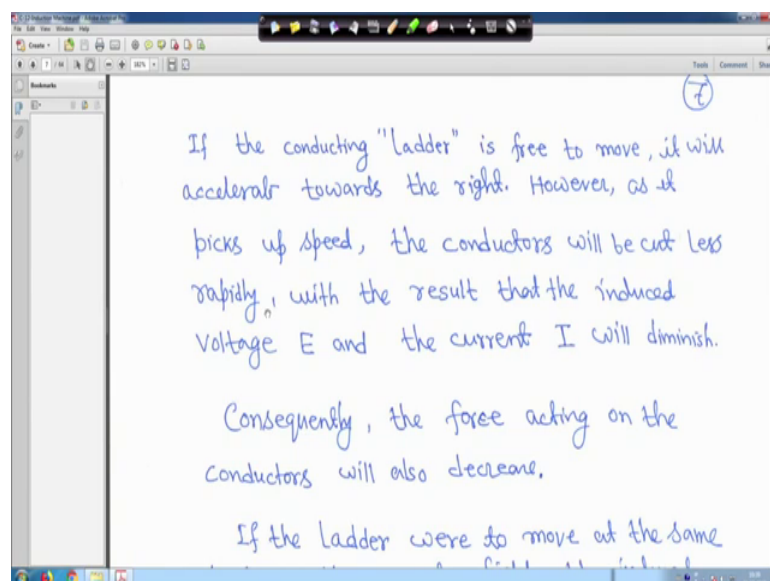 File Edit View Window Help
Create
7 / 182%
Tools Comment
Bookmarks
7
If the conducting "ladder" is free to move, it will
accelerate towards the right. However, as it
picks up speed, the conductors will be cut less
rapidly, with the result that the induced
voltage E and the current I will diminish.
Consequently, the force acting on the
conductors will also decrease.
If the Ladder were to move at the same